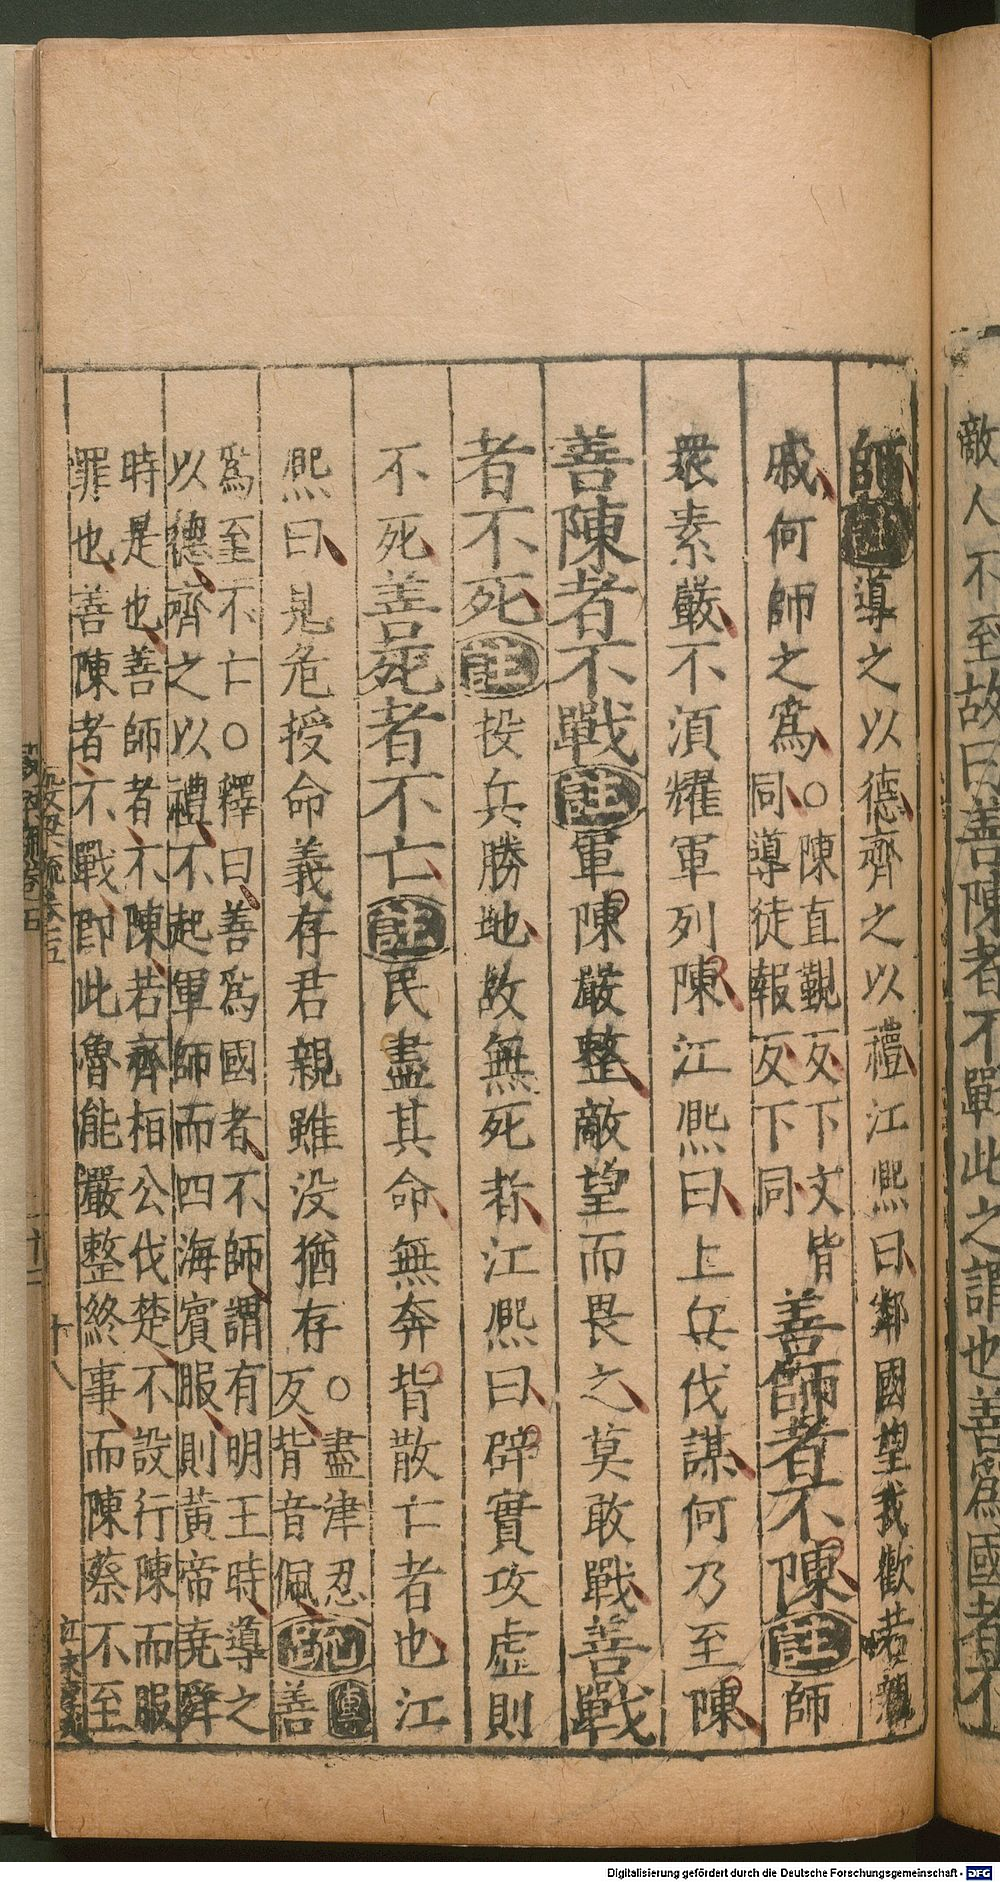 敵人不至故曰善陳者不戰此之謂也善爲國者不
師註導之以德齊之以禮江熙曰鄰國望我歡若親
戚何師之爲○陳直覲反下文皆同導徒報反下同善師者不陳註師
衆素嚴不須耀軍列陳江熙曰上兵伐謀何乃至陳
善陳者不戰註軍陳嚴整敵望而畏之莫敢戰善戰
者不死註投兵勝地故無死者江熙曰辟實攻虛則
不死善死者不亡註民盡其命無奔背散亡者也江
熙曰見危授命義存君親雖没猶存○盡津忍反背音佩疏善
爲至不亡○釋曰善爲國者不師謂有明王時導之
以德齊之以禮不起軍師而四海賓服則黃帝堯舜
時是也善師者不陳若齊桓公伐楚不設行陳而服
罪也善陳者不戰即此魯能嚴整終事而陳蔡不至
十八
Digitalisierung gefördert durch die Deutsche Forschungsgemeinschaft - DFG